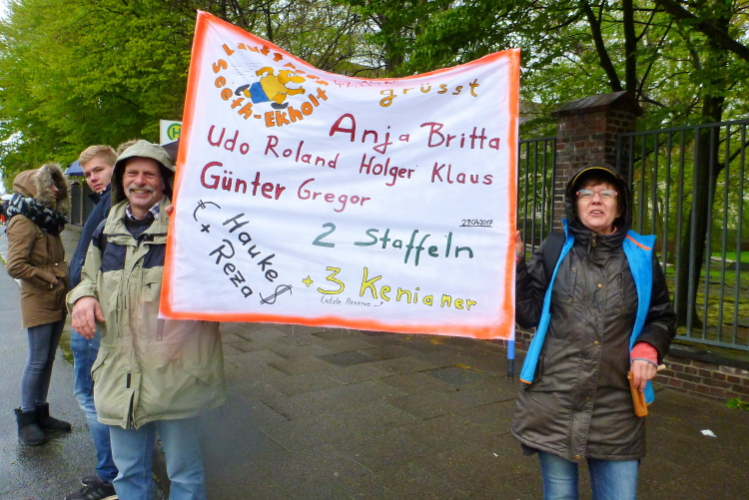 Lauftreff
Seeth-Ekholt
grüsst
Anja Britta
Udo Roland Holger Klaus
Günter Gregor
23042017
2 Staffeln
( Hauke
+ Reza )
+ 3 Kenianer
(letzte Reserve)
H